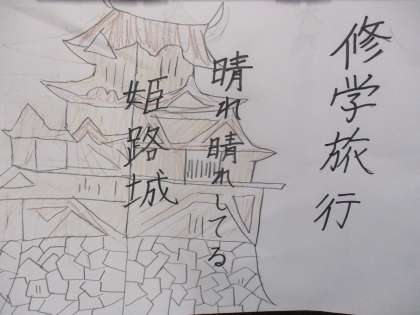 修学旅行
晴れ晴れしてる
姫路城